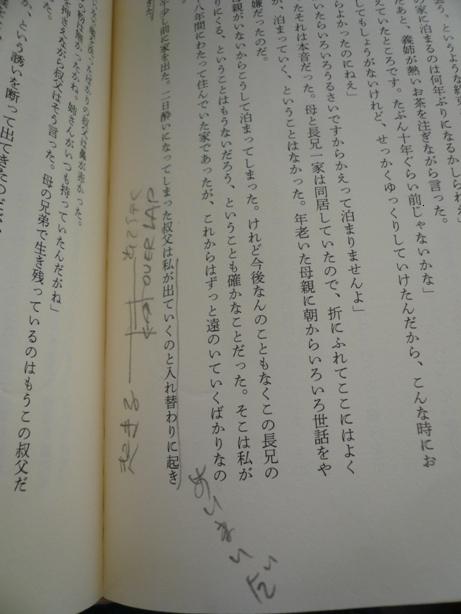 の家に泊まるのは何年ぶりになるかしらねえ」
たあと、義姉が熱いお茶を注ぎながら言った。
えていたところです。たぶん十年ぐらい前じゃないかな」
してもしょうがないけれど、せっかくゆっくりしていけたんだから、こんな時にお
らよかったのにねえ」
いたらいろいろうるさいですからかえって泊まりませんよ」
たそれは本音だった。母と長兄一家は同居していたので、折にふれてここにはよく
が、泊まっていく、ということはなかった。年老いた母親に朝からいろいろ世話をや
嫌だったのだ。
親がいないからこうして泊まってしまった。けれど今後なんのこともなくこの長兄の
りにくる、ということはもうないだろう、ということも確かなことだった。そこは私が
八年間にわたって住んでいた家であったが、これからはずっと遠のいていくばかりなの
あいまい
少し前に家を出た。二日酔いになってしまった叔父は私が出ていくのと入れ替わりに起き
OVER LAP
ばかりの叔父は鼻が赤かった。
かったかね。姉さんがいつも持っていたんだがね」
を押さえながら叔父はそう言った。母の兄弟で生き残っているのはもうこの叔父だ
か、という誘いを断って出てきたのだが、